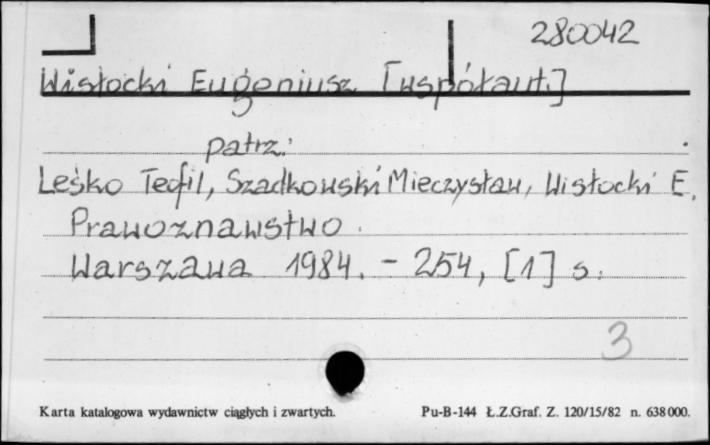 280042
Wisłocki Eugeniusz [współaut.]
patrz:
Leśko Teofil, Szadkowski Mieczysław, Wisłocki E.
Prawoznawstwo.
Warszawa 1984. - 254, [1] s.
3
Karta katalogowa wydawnictw ciągłych i zwartych. Pu-B-144 Ł.Z.Graf. Z. 120/15/82 n. 638 000.